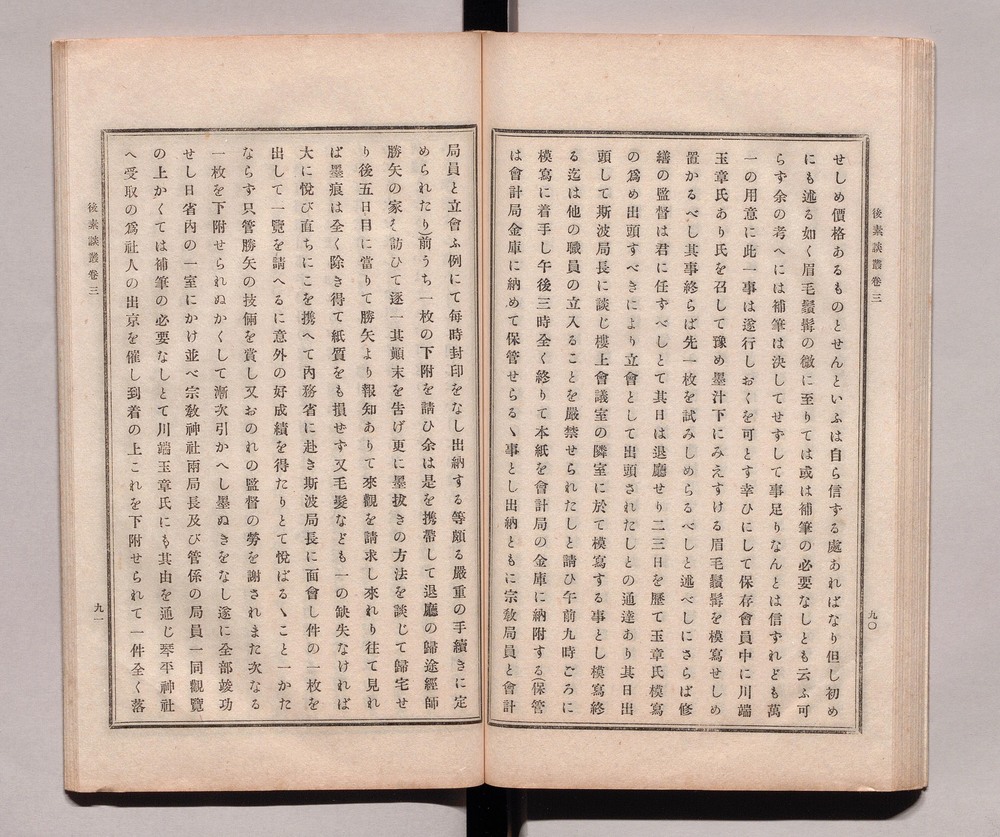 後素談叢卷三
九〇
せしめ價格あるものとせんといふは自ら信する處あればなり但し初め
にも述る如く眉毛鬚髯の微に至りては或は補筆の必要なしとも云ふ可
らず余の考へには補筆は決してせずして事足りなんとは信ずれども萬
一の用意に此一事は遂行しおくを可とす幸ひにして保存會員中に川端
玉章氏あり氏を召して豫め墨汁下にみえすける眉毛鬚髯を模寫せしめ
置かるべし其事終らば先一枚を試みしめらるべしと述べしにさらば修
繕の監督は君に任すべしとて其日は退廳せり二三日を歷て玉章氏模寫
の爲め出頭すべきにより立會として出頭されたしとの通達あり其日出
頭して斯波局長に談じ樓上會議室の隣室に於て模寫する事とし模寫終
る迄は他の職員の立入ることを嚴禁せられたしと請ひ午前九時ごろに
模寫に着手し午後三時全く終りて本紙を會計局の金庫に納附する(保管
は會計局金庫に納めて保管せらるヽ事とし出納ともに宗敎局員と會計
局員と立會ふ例にて每時封印をなし出納する等頗る嚴重の手續きに定
められたり)前うち一枚の下附を請ひ余は是を携帶して退廳の歸途經師
勝矢の家を訪ひて逐一其顚末を吿げ更に墨拔きの方法を談じて歸宅せ
り後五日目に當りて勝矢より報知ありて來觀を請求し來れり往て見れ
ば墨痕は全く除き得て紙質をも損せず又毛髮なども一の缺失なければ
大に悅び直ちにこを携へて內務省に赴き斯波局長に面會し件の一枚を
出して一覽を請へるに意外の好成績を得たりとて悅ばるヽこと一かた
ならず只管勝矢の技倆を賞し又おのれの監督の勞を謝されまた次なる
一枚を下附せられぬかくして漸次引かへし墨ぬきをなし遂に全部竣功
せし日省內の一室にかけ並べ宗敎神社兩局長及び管係の局員一同觀覽
の上かくては補筆の必要なしとて川端玉章氏にも其由を通じ琴平神社
へ受取の爲社人の出京を催し到着の上これを下附せられて一件全く落
後素談叢卷三
九一